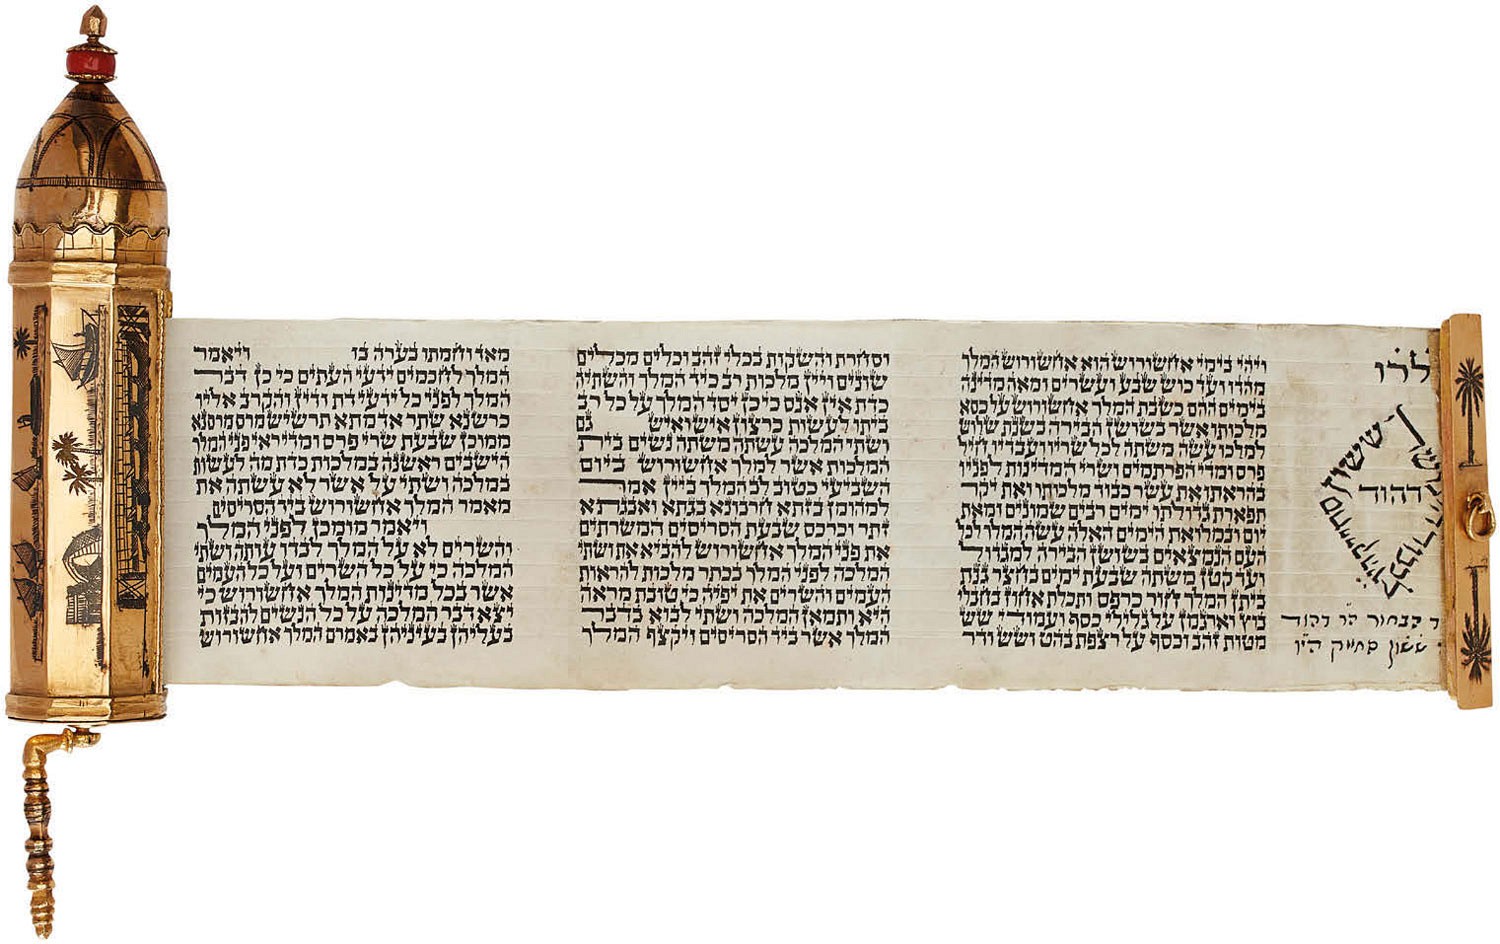 דהוד
ששון סחייק
הבחור ה״ר דהוד
ששון סחייק הי״ו
ויהי בימי אחשורוש הוא אחשורוש המלך
מהדו ועד כוש שבע ועשרים ומאה מדינה
בימים ההם כשבת המלך אחשורוש על כסא
מלכותו אשר בשושן הבירה בשנת שלוש
למלכו עשה משתה לכל שריו ועבדיו חיל
פרס ומדי הפרתמים ושרי המדינות לפניו
בהראתו את עשר כבוד מלכותו ואת יקר
תפארת גדולתו ימים רבים שמונים ומאת
יום ובמלואת הימים האלה עשה המלך לכל
העם הנמצאים בשושן הבירה למגדול
ועד קטן משתה שבעת ימים בחצר גנת
ביתן המלך חור כרפס ותכלת אחוז בחבלי
בוץ וארגמן על גלילי כסף ועמודי שש
מטות זהב וכסף על רצפת בהט ושש ודר
וסחרת והשקות בכלי זהב וכלים מכלים
שונים ויין מלכות רב כיד המלך והשתיה
כדת אין אנס כי כן יסד המלך על כל רב
ביתו לעשות כרצון איש ואיש גם
ושתי המלכה עשתה משתה נשים בית
המלכות אשר למלך אחשורוש ביום
השביעי כטוב לב המלך ביין אמר
למהומן בזתא חרבונא בגתא ואבגתא
זתר וכרכס שבעת הסריסים המשרתים
את פני המלך אחשורוש להביא את ושתי
המלכה לפני המלך בכתר מלכות להראות
העמים והשרים את יפיה כי טובת מראה
היא ותמאן המלכה ושתי לבוא בדבר
המלך אשר ביד הסריסים ויקצף המלך
מאד וחמתו בערה בו ויאמר
המלך לחכמים ידעי העתים כי כן דבר
המלך לפני כל ידעי דת ודין והקרב אליו
כרשנא שתר אדמתא תרשיש מרס מרסנא
ממוכן שבעת שרי פרס ומדי ראי פני המלך
הישבים ראשנה במלכות כדת מה לעשות
במלכה ושתי על אשר לא עשתה את
מאמר המלך אחשורוש ביד הסריסים
ויאמר מומכן לפני המלך
והשרים לא על המלך לבדו עותה ושתי
המלכה כי על כל השרים ועל כל העמים
אשר בכל מדינות המלך אחשורוש כי
יצא דבר המלכה על כל הנשים להבזות
בעליהן בעיניהן באמרם המלך אחשורוש